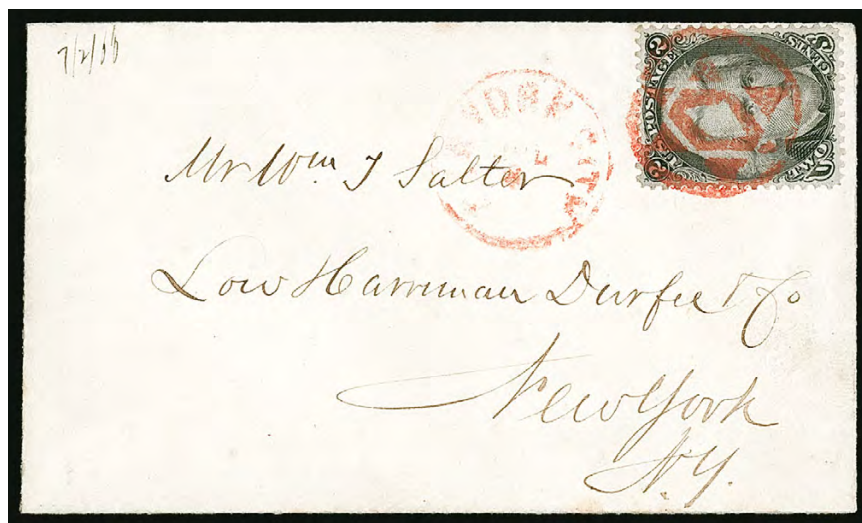 7/2/66
U.S. POSTAGE
2 2
TWO CENTS
NEW YORK CITY
JUL
2
Mr Wm J Salter
Low Harriman Durfee & Co
New York
N.Y.